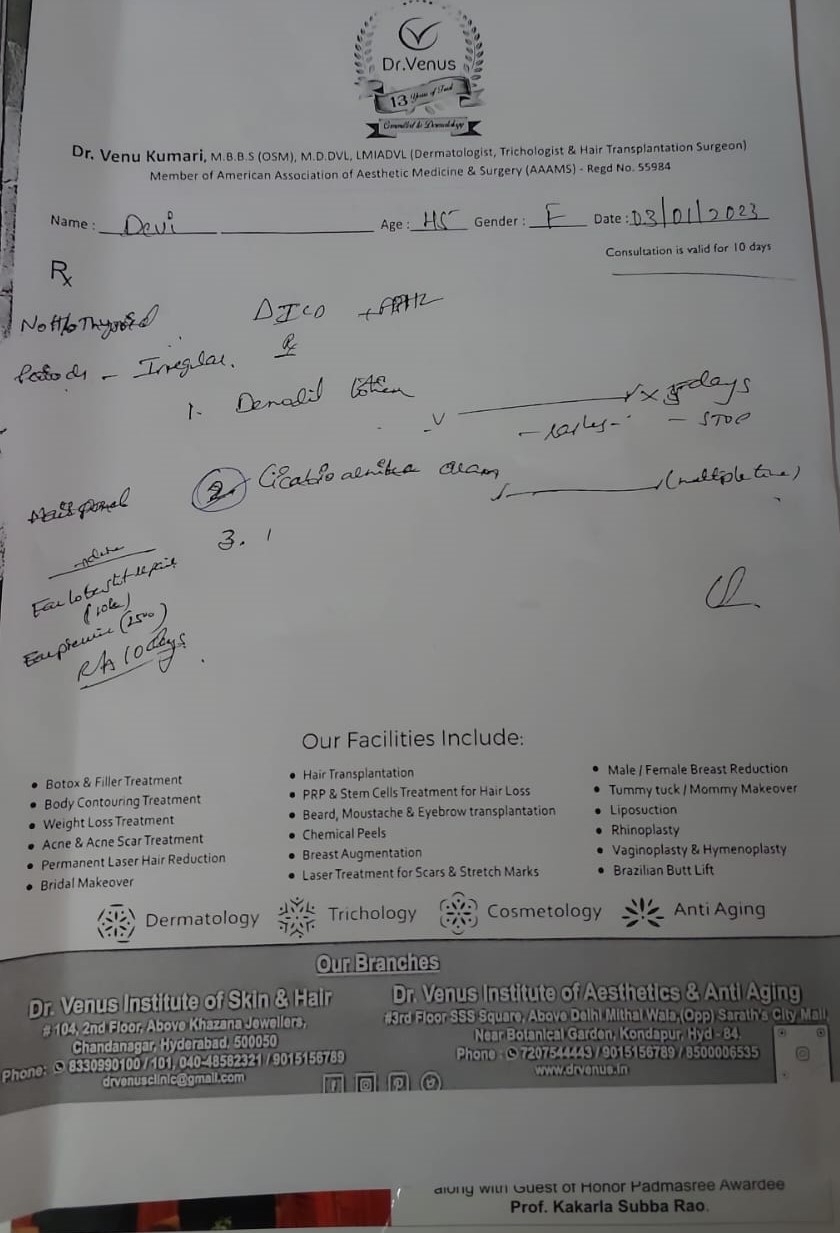 Dr.Venus
13 Years of Trust
Committed to Dermatology
Dr. Venu Kumari, M.B.B.S (OSM), M.D.DVL, LMIADVL (Dermatologist, Trichologist & Hair Transplantation Surgeon)
Member of American Association of Aesthetic Medicine & Surgery (AAAMS) - Regd No. 55984
Name : Devi Age : 45 Gender : F Date : 03/01/2023
Consultation is valid for 10 days
Rx
No H/o Thyroid
- Irregular.
1. lotion x days
- STOP
2. cream (multiple time)
3.
Ear lobe slit repair
(10k)
(2500)
10 days
Our Facilities Include:
Botox & Filler Treatment
Body Contouring Treatment
Weight Loss Treatment
Acne & Acne Scar Treatment
Permanent Laser Hair Reduction
Bridal Makeover
Hair Transplantation
PRP & Stem Cells Treatment for Hair Loss
Beard, Moustache & Eyebrow transplantation
Chemical Peels
Breast Augmentation
Laser Treatment for Scars & Stretch Marks
Male / Female Breast Reduction
Tummy tuck / Mommy Makeover
Liposuction
Rhinoplasty
Vaginoplasty & Hymenoplasty
Brazilian Butt Lift
Dermatology Trichology Cosmetology Anti Aging
Our Branches
Dr. Venus Institute of Skin & Hair
# 104, 2nd Floor, Above Khazana Jewellers,
Chandanagar, Hyderabad. 500050
Phone: 8330990100 / 101, 040-48582321 / 9015156789
drvenusclinic@gmail.com
Dr. Venus Institute of Aesthetics & Anti Aging
#3rd Floor SSS Square, Above Delhi Mithai Wala,(Opp) Sarath's City Mall
Near Botanical Garden, Kondapur, Hyd - 84.
Phone : 7207544443 / 9015156789 / 8500006535
www.drvenus.in
along with Guest of Honor Padmasree Awardee
Prof. Kakarla Subba Rao.